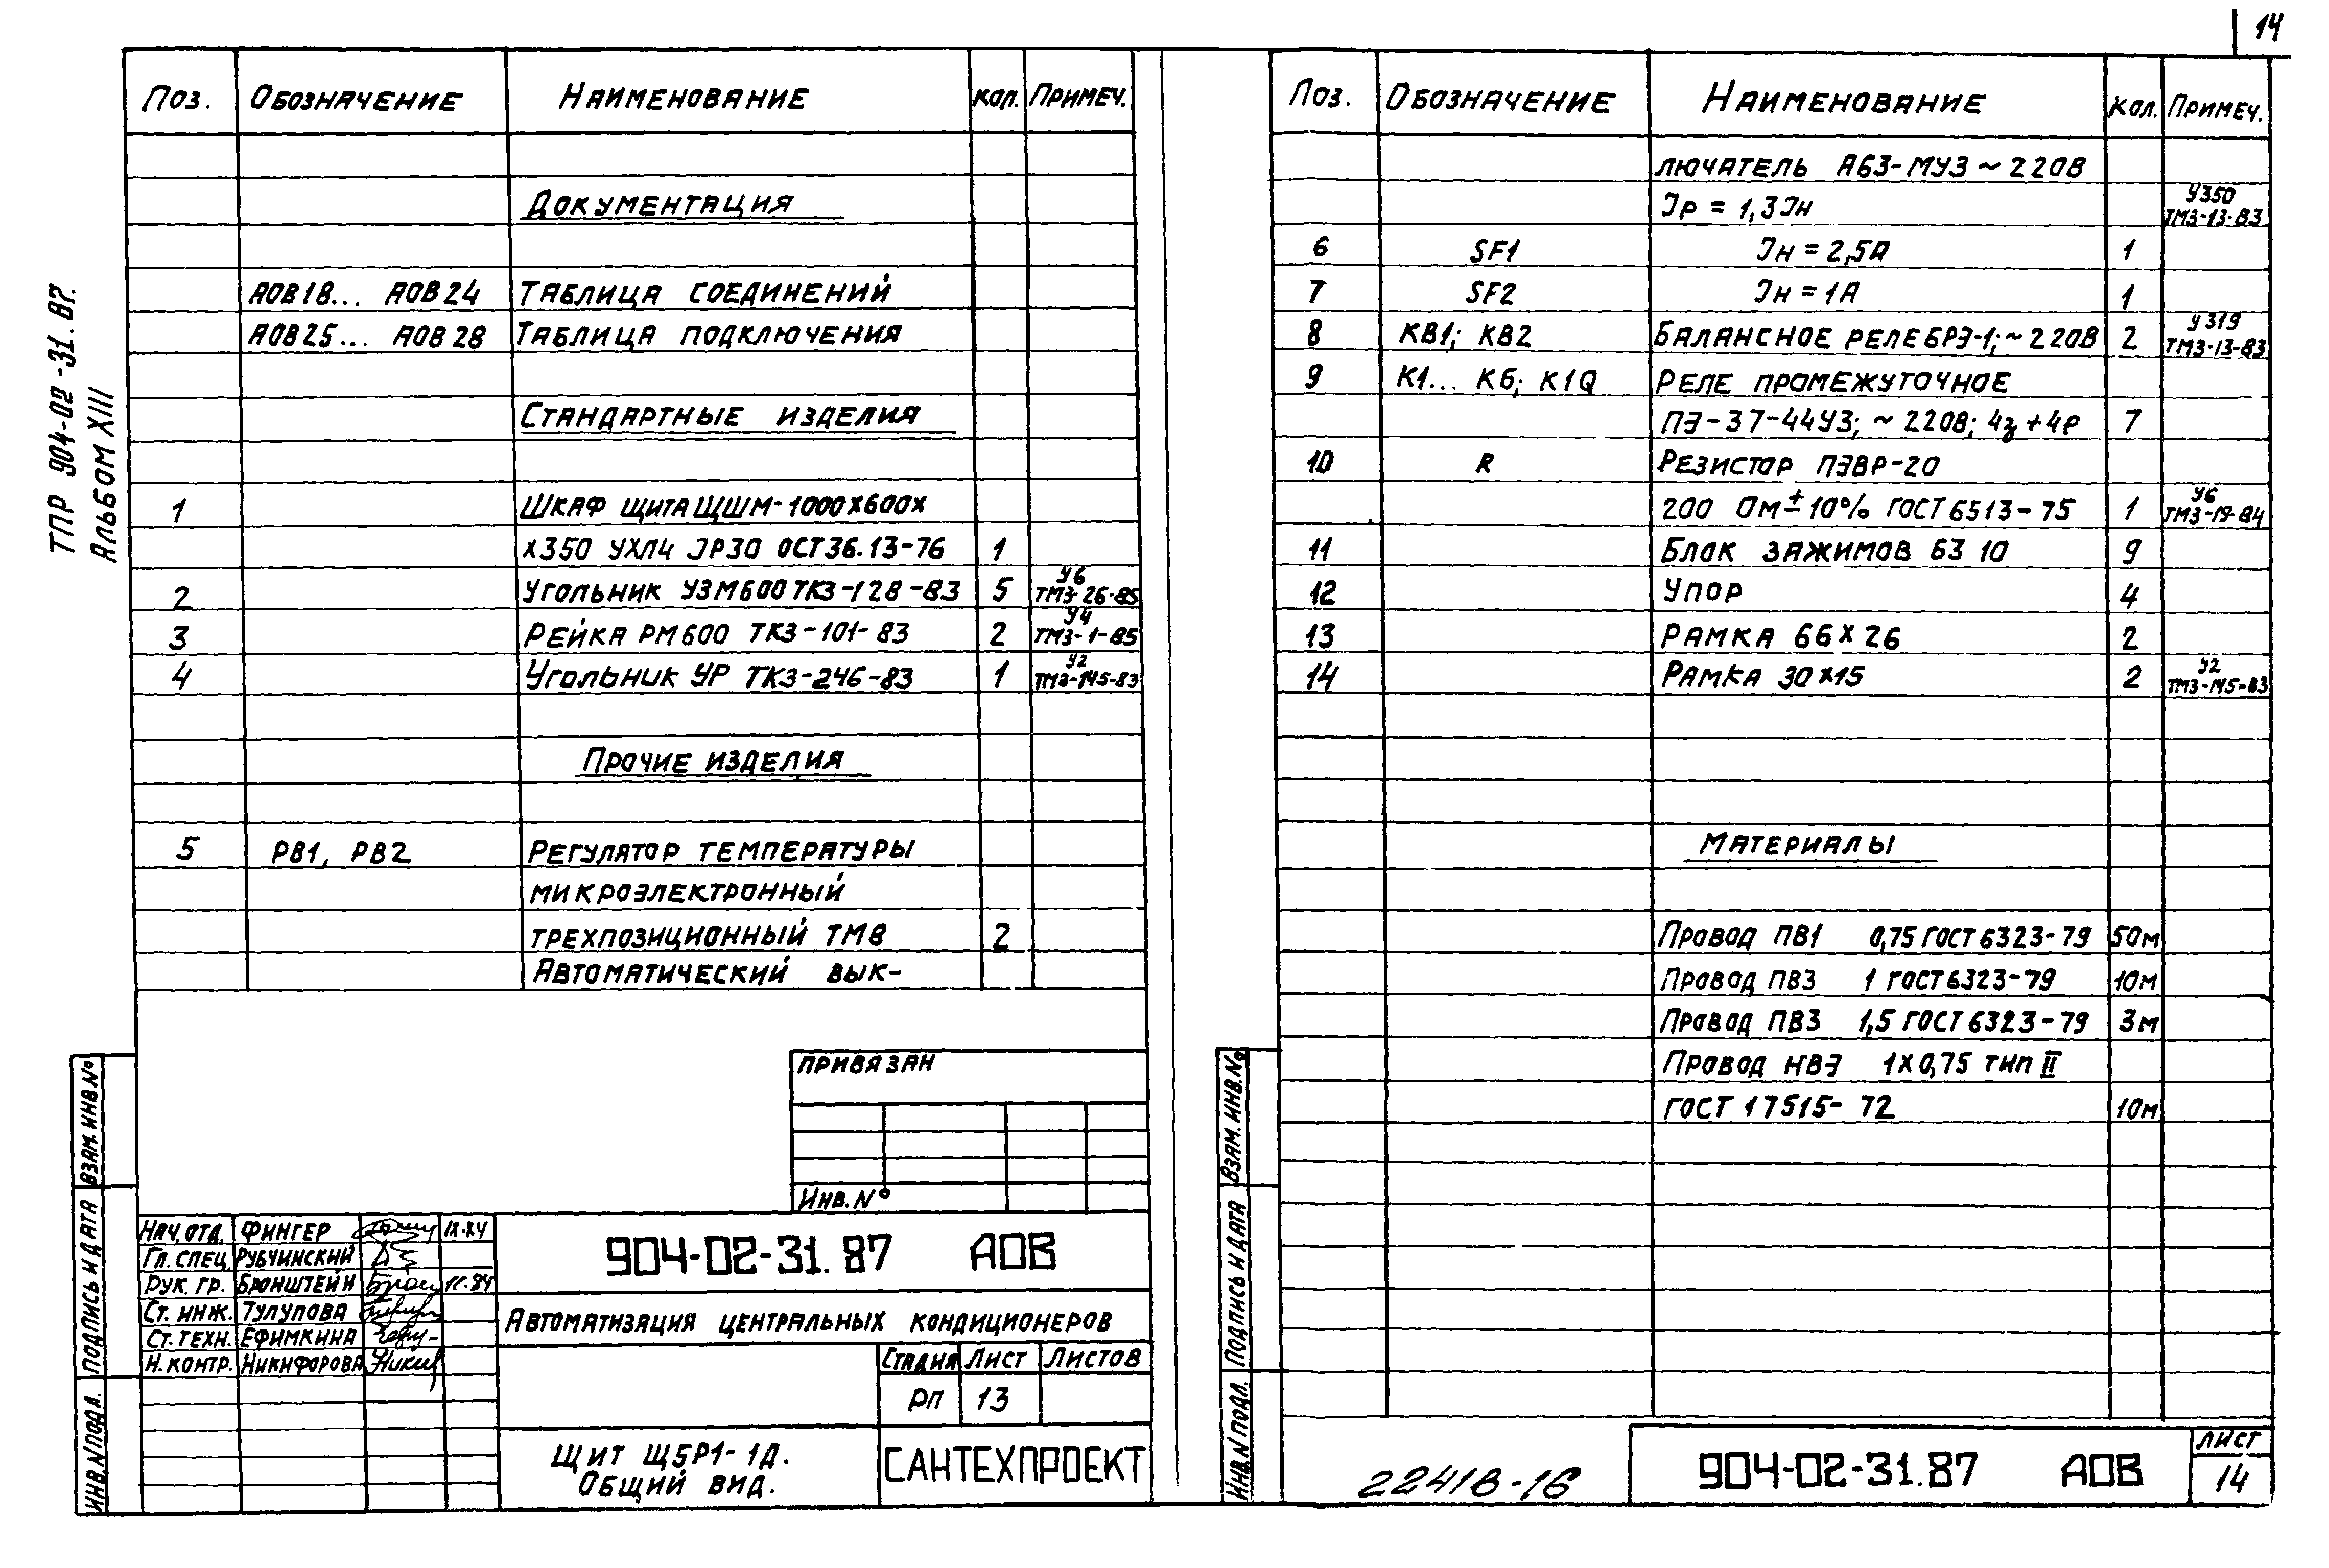 14
ТПР 904-02-31.87.
Альбом XIII
Поз. Обозначение Наименование Кол. Примеч.
Документация
АОВ18... АОВ24 Таблица соединений
АОВ25... АОВ28 Таблица подключения
Стандартные изделия
1 Шкаф щита ЩШМ-1000х600х
х350 УХЛ4 JP30 ОСТ36.13-76 1
2 Угольник УЗМ600 ТКЗ-128-83 5 У6 ТМ3-26-85
3 Рейка РМ600 ТКЗ-101-83 2 У4 ТМ3-1-85
4 Угольник УР ТКЗ-246-83 1 У2 ТМ3-145-83
Прочие изделия
5 РВ1, РВ2 Регулятор температуры
микроэлектронный
трехпозиционный ТМ8 2
Автоматический вык-
Привязан
Инв.N°
Нач. отд. Фингер
Гл. спец. Рубчинский
Рук. гр. Бронштейн 12.84
Ст. инж. Тулупова
Ст. техн. Ефимкина
Н. контр. Никифорова
904-02-31.87 АОВ
Автоматизация центральных кондиционеров
Стадия Лист Листов
РП 13
Щит Щ5Р1-1Д.
Общий вид.
САНТЕХПРОЕКТ
Взам. инв. N°
Подпись и дата
Инв. N подл.
Поз. Обозначение Наименование Кол. Примеч.
лючатель А63-МУ3 ~ 220В
Jр = 1,3Jн У350 ТМ3-13-83
6 SF1 Jн = 2,5А 1
7 SF2 Jн = 1А 1
8 КВ1; КВ2 Балансное реле БРЭ-1; ~220В 2 У319 ТМ3-13-83
9 К1... К6; К1Q Реле промежуточное
ПЭ-37-44У3; ~ 220В; 4з + 4р 7
10 R Резистор ПЭВР-20
200 Ом ± 10% ГОСТ 6513-75 1 У6 ТМ3-19-84
11 Блок зажимов Б3 10 9
12 Упор 4
13 Рамка 66 х 26 2
14 Рамка 30х15 2 У2 ТМ3-145-83
Материалы
Провод ПВ1 0,75 ГОСТ 6323-79 50м
Провод ПВ3 1 ГОСТ 6323-79 10м
Провод ПВ3 1,5 ГОСТ 6323-79 3м
Провод НВЭ 1х0,75 тип II
ГОСТ 17515-72 10м
Взам. инв. N°
Подпись и дата
Инв. N подл.
22418-16
904-02-31.87 АОВ
Лист
14